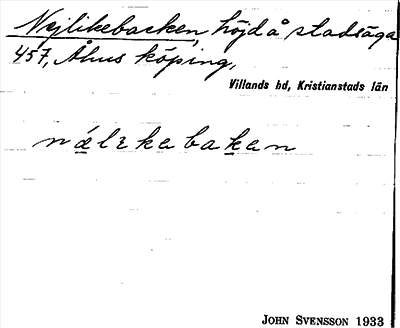 Nejlikebacken, höjd å stadsäga
457, Åhus köping,
Villands hd, Kristianstads län
nǽlɛkabakan
JOHN SVENSSON 1933